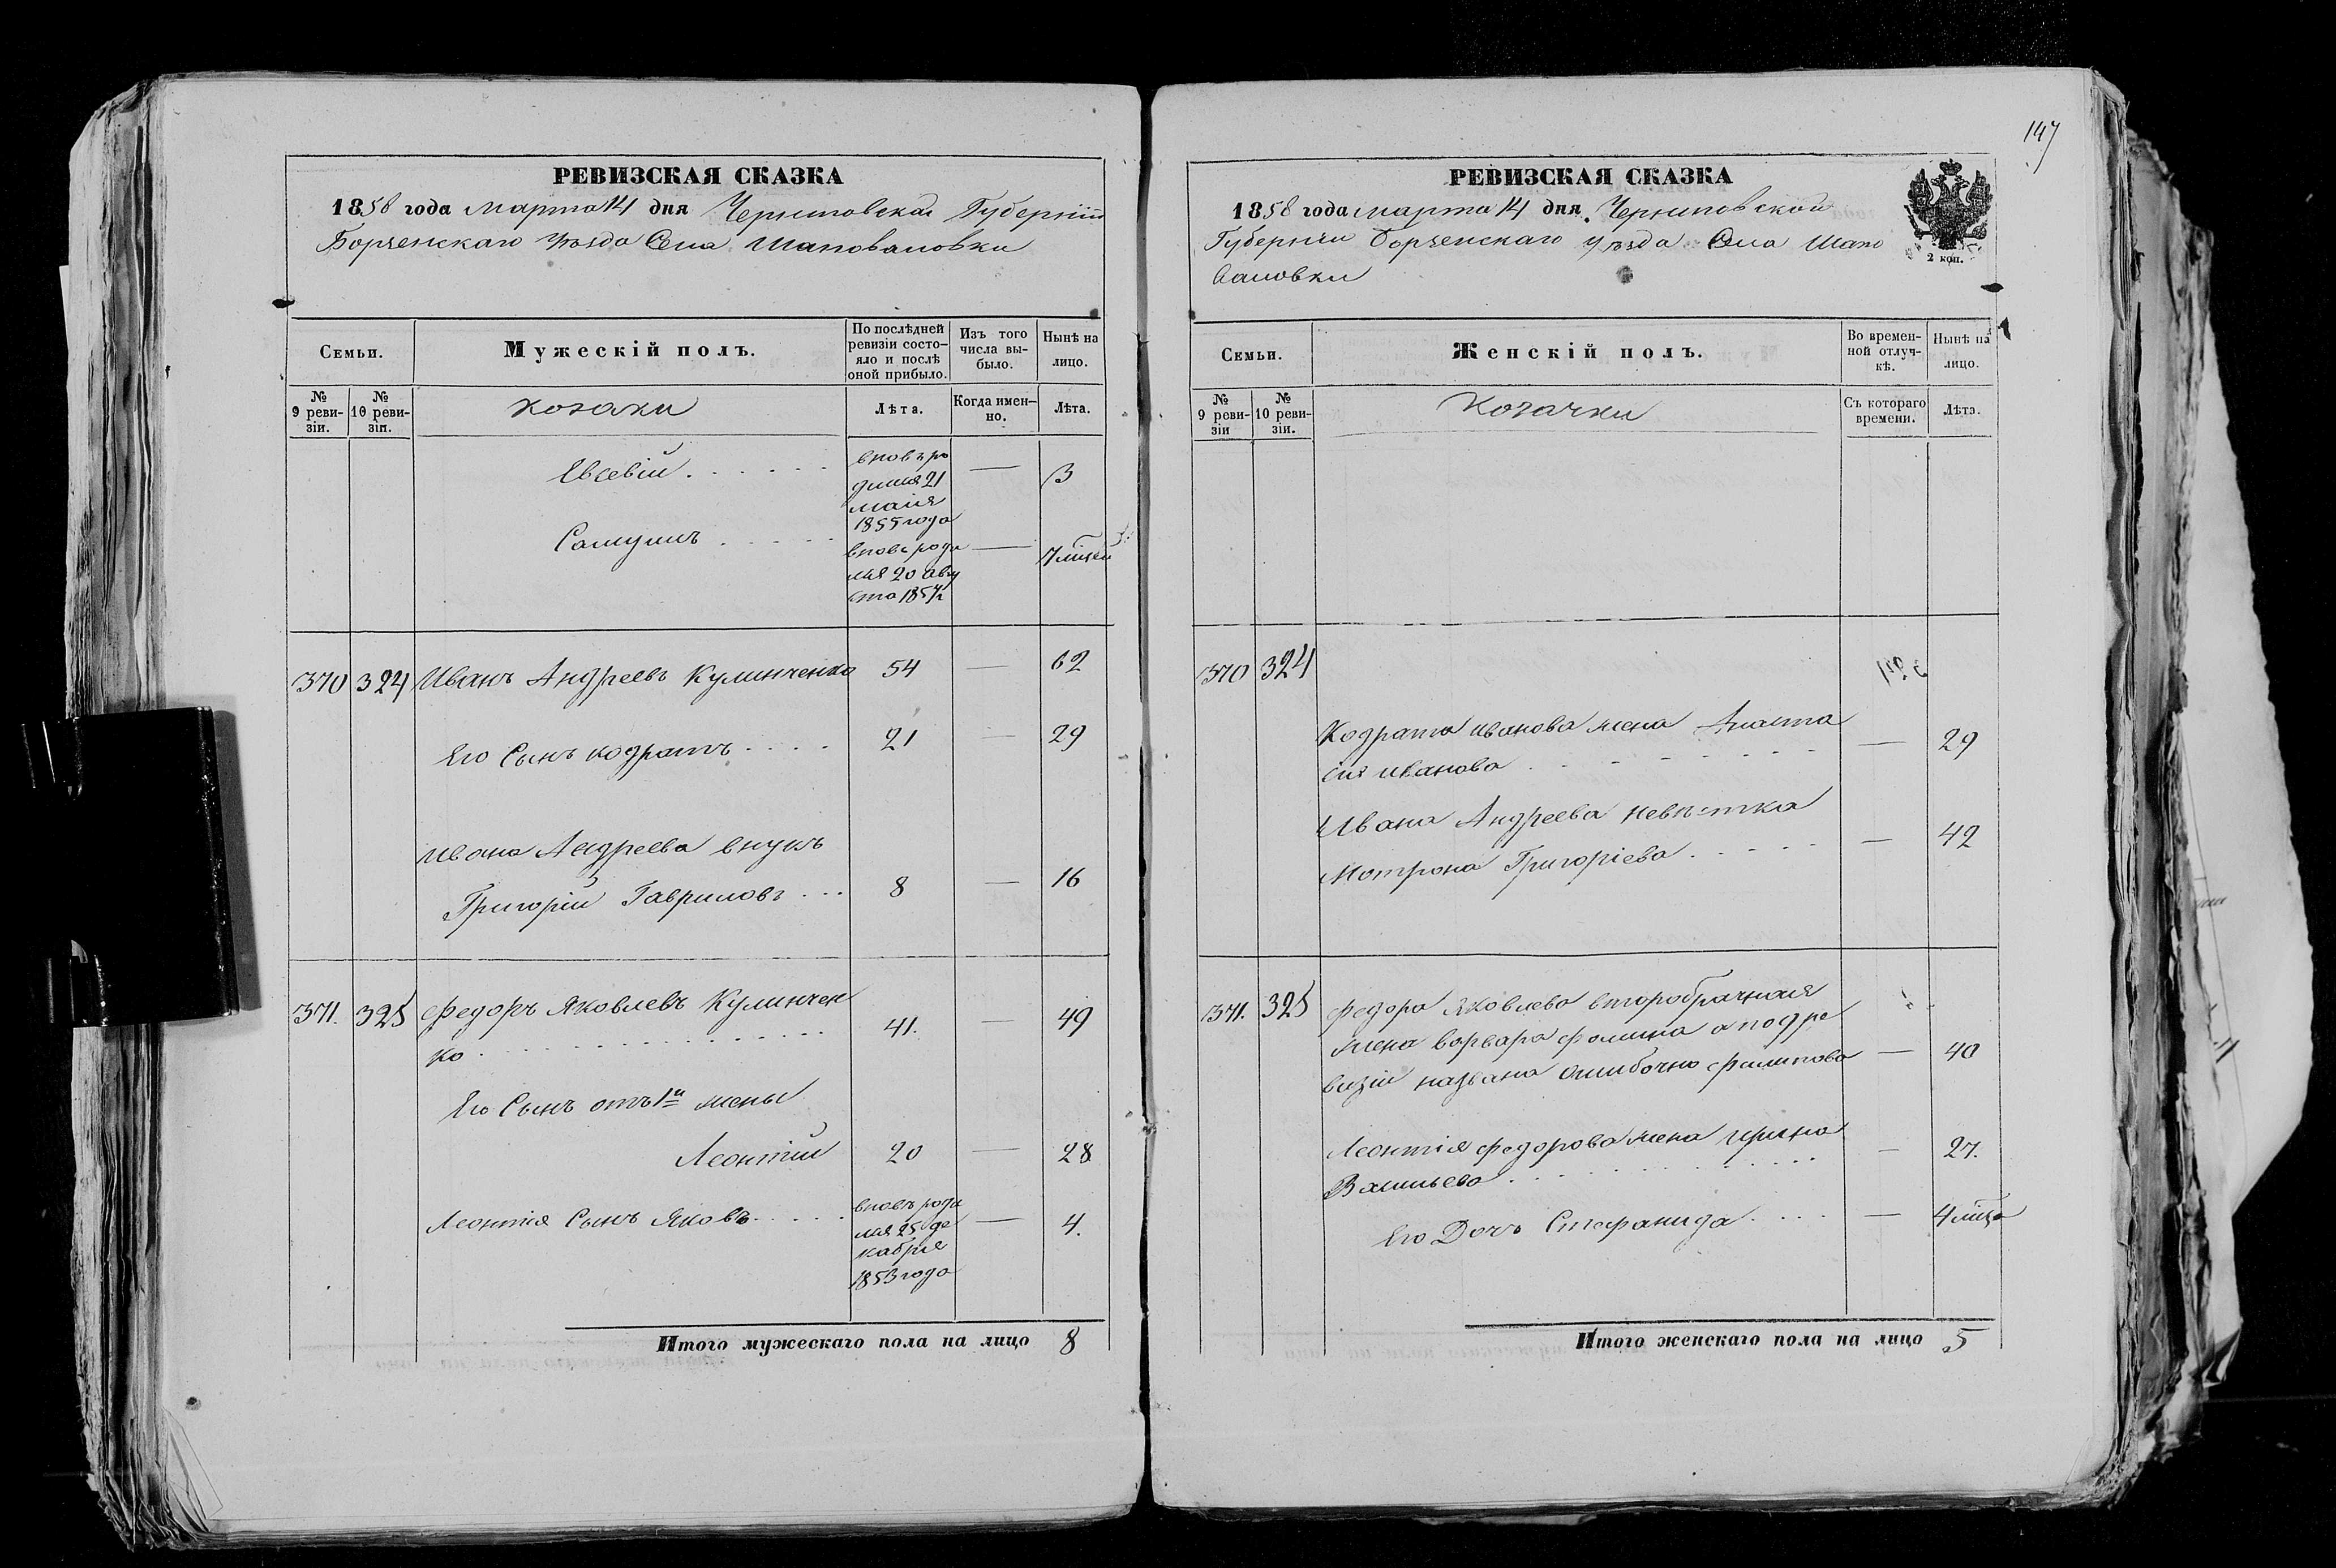 РЕВИЗСКАЯ СКАЗКА
1858 года марта 14 дня Черниговской Губерніи
Борзенскаго уѣзда Села Шаповаловки
Семьи.
Мужескій полъ.
По послѣдней ревизіи состо-
яло и послѣ
оной прибыло.
Изъ того
числа вы-
было.
Нынѣ на
лицо.
№
9 реви-
зіи.
№
10 реви-
зіи.
козаки
Лѣта.
Когда имен-
но.
Лѣта.
Евсевій
вновь ро
дился 21
маія
1855 года
—
3
Самуилъ
вновь роди
лся 20 авгу
ста 1857
—
7
370 324 Иванъ Андреевъ Кулинченко 54 — 62
Его Сынъ кодратъ 21 — 29
Ивана Андреева внукъ
Григорій Гавриловъ 8 — 16
371. 325 Федоръ Яковлевъ Кулинчен
ко 41. — 49
Его Сынъ отъ 1й жены
Леонтій 20 — 28
Леонтія Сынъ Яковъ
вновь роди
лся 25 де
кабря
1853 года
—
4.
Итого мужескаго пола на лицо 8
147
РЕВИЗСКАЯ СКАЗКА
1858 года марта 14 дня Черниговской
Губерніи Борзенскаго уѣзда Села Шапо
валовки
2 коп.
Семьи.
Женскій полъ.
Во времен-
ной отлуч-
кѣ.
Нынѣ на
лицо.
№
9 реви-
зіи
№
10 реви-
зіи.
Козачки
Съ котораго
времени.
Лѣта.
370 324
Кодрата иванова жена Анаста
сія иванова — 29
Ивана Андреева невѣстка
Мотрона Григоріева — 42
371. 325 Федора Яковлева второбрачная
жена варвара фомина а по 9 ре
визіи названа ошибочно филипова — 40
Леонтія федорова жена Ирина
Васильева — 27.
Его Дочь Стефанида — 4
Итого женскаго пола на лицо 5